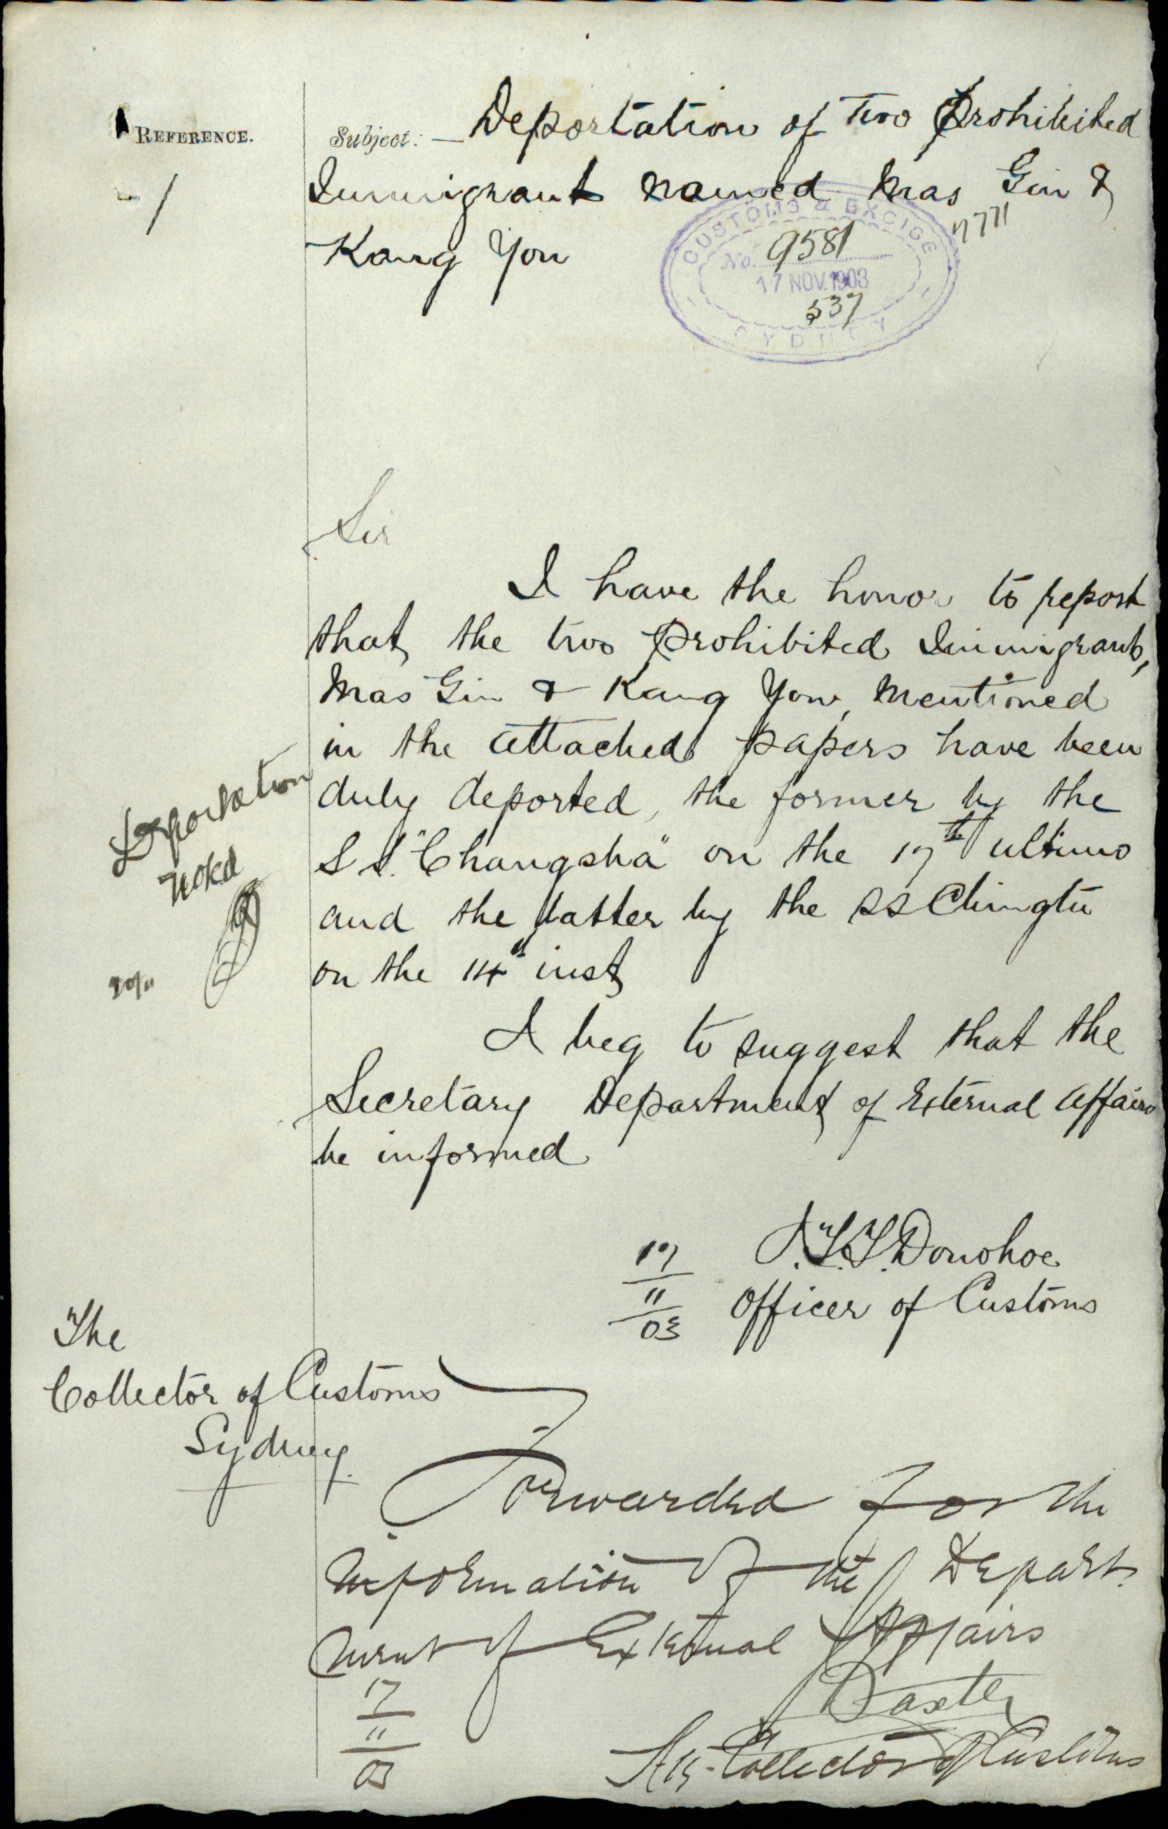 REFERENCE.
Subject:— Deportation of Two Prohibited
Immigrants named Mas Gin &
Kang You
7771
CUSTOMS & EXCISE
No. 9581
17 NOV. 1903
537
SYDNEY
Sir
I have the honor to report
that the two Prohibited Immigrants,
Mas Gin & Kang You, mentioned
in the attached papers have been
duly deported, the former by the
S.S. "Changsha" on the 17th ultimo
and the latter by the SS Chingtu
on the 14th inst
Deportation
noted
20/11
I beg to suggest that the
Secretary Department of External Affairs
be informed
17/11/03
Donohoe
Officer of Customs
The
Collector of Customs
Sydney.
Forwarded for the
information of the Depart-
ment of External Affairs
17/11/03
Baxter
Collector of Customs